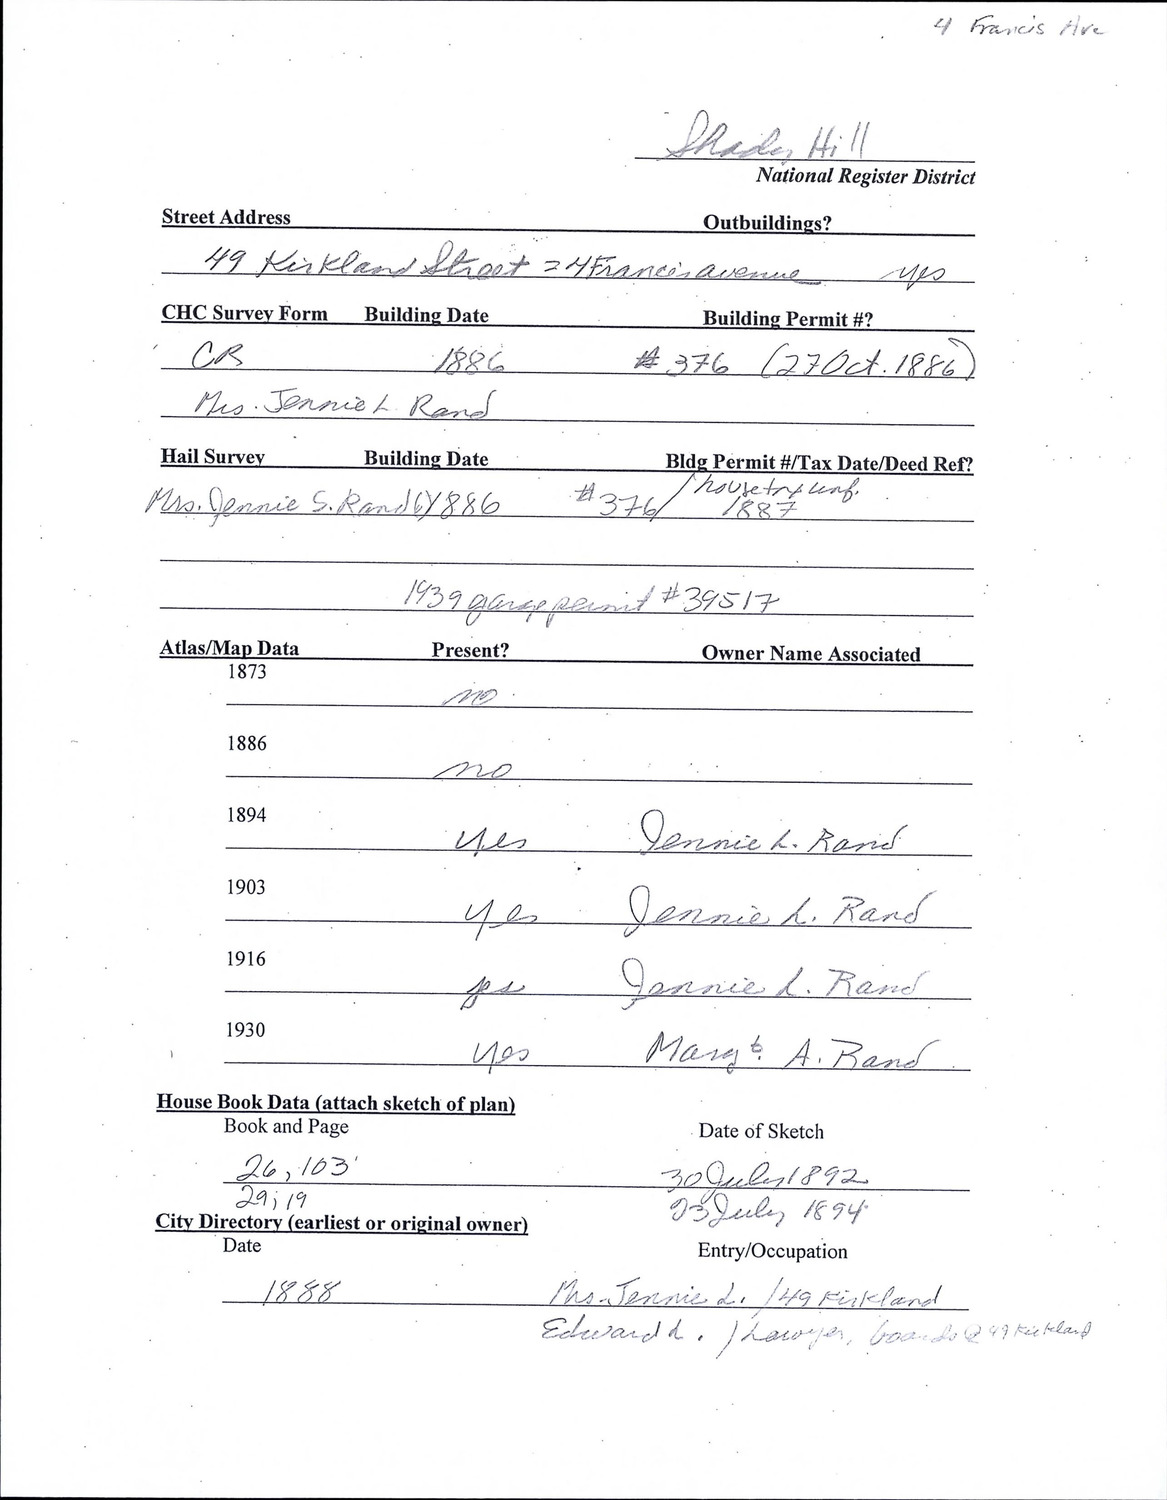 4 Francis Ave
Shady Hill
National Register District
Street Address Outbuildings?
49 Kirkland Street = 4 Francis avenue yes
CHC Survey Form Building Date Building Permit #?
CR 1886 #376 (27 Oct. 1886)
Mrs. Jennie L. Rand
Hail Survey Building Date Bldg Permit #/Tax Date/Deed Ref?
Mrs. Jennie S. Rand 1886 #376/ house tax unf.
1887
1939 garage permit #39517
Atlas/Map Data Present? Owner Name Associated
1873
no
1886
no
1894
yes Jennie L. Rand
1903
yes Jennie L. Rand
1916
yes Jennie L. Rand
1930
yes Margt. A. Rand
House Book Data (attach sketch of plan)
Book and Page Date of Sketch
26, 103 30 July 1892
29; 19 23 July 1894
City Directory (earliest or original owner)
Date Entry/Occupation
1888 Mrs. Jennie L. /49 Kirkland
Edward L. / Lawyer, boards @ 49 Kirkland